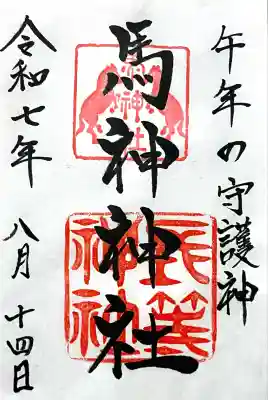 午年の守護神
馬神神社
令和七年 八月 十四日
長等神社